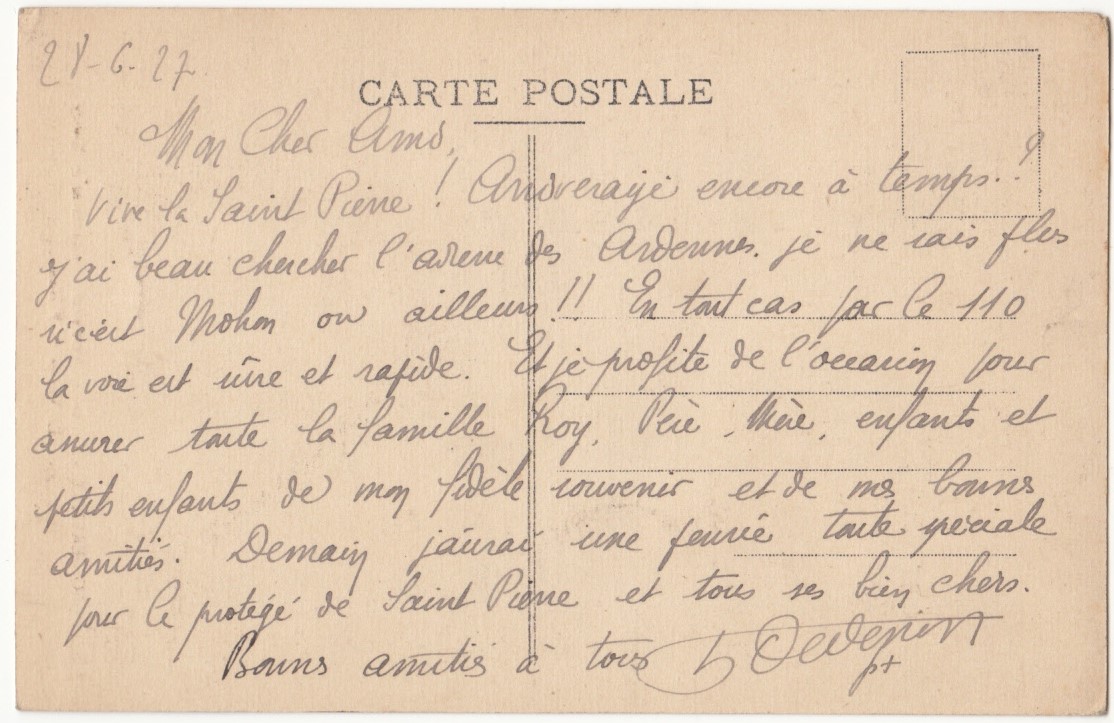 28-6-27
CARTE POSTALE
Mon Cher Ami,
Vive la Saint Pierre ! Arriverai je encore à temps.?
j'ai beau chercher l'avenue des Ardennes. je ne sais plus
si c'est Mohon ou ailleurs !! En tout cas par le 110
la voie est sûre et rapide. Et je profite de l'occasion pour
assurer toute la famille Roy, Père, Mère, enfants et
petits enfants de mon fidèle souvenir et de mes bonnes
amitiés. Demain j'aurai une pensée toute spéciale
pour le protégé de Saint Pierre et tous ses bien chers.
Bonnes amitiés à tous